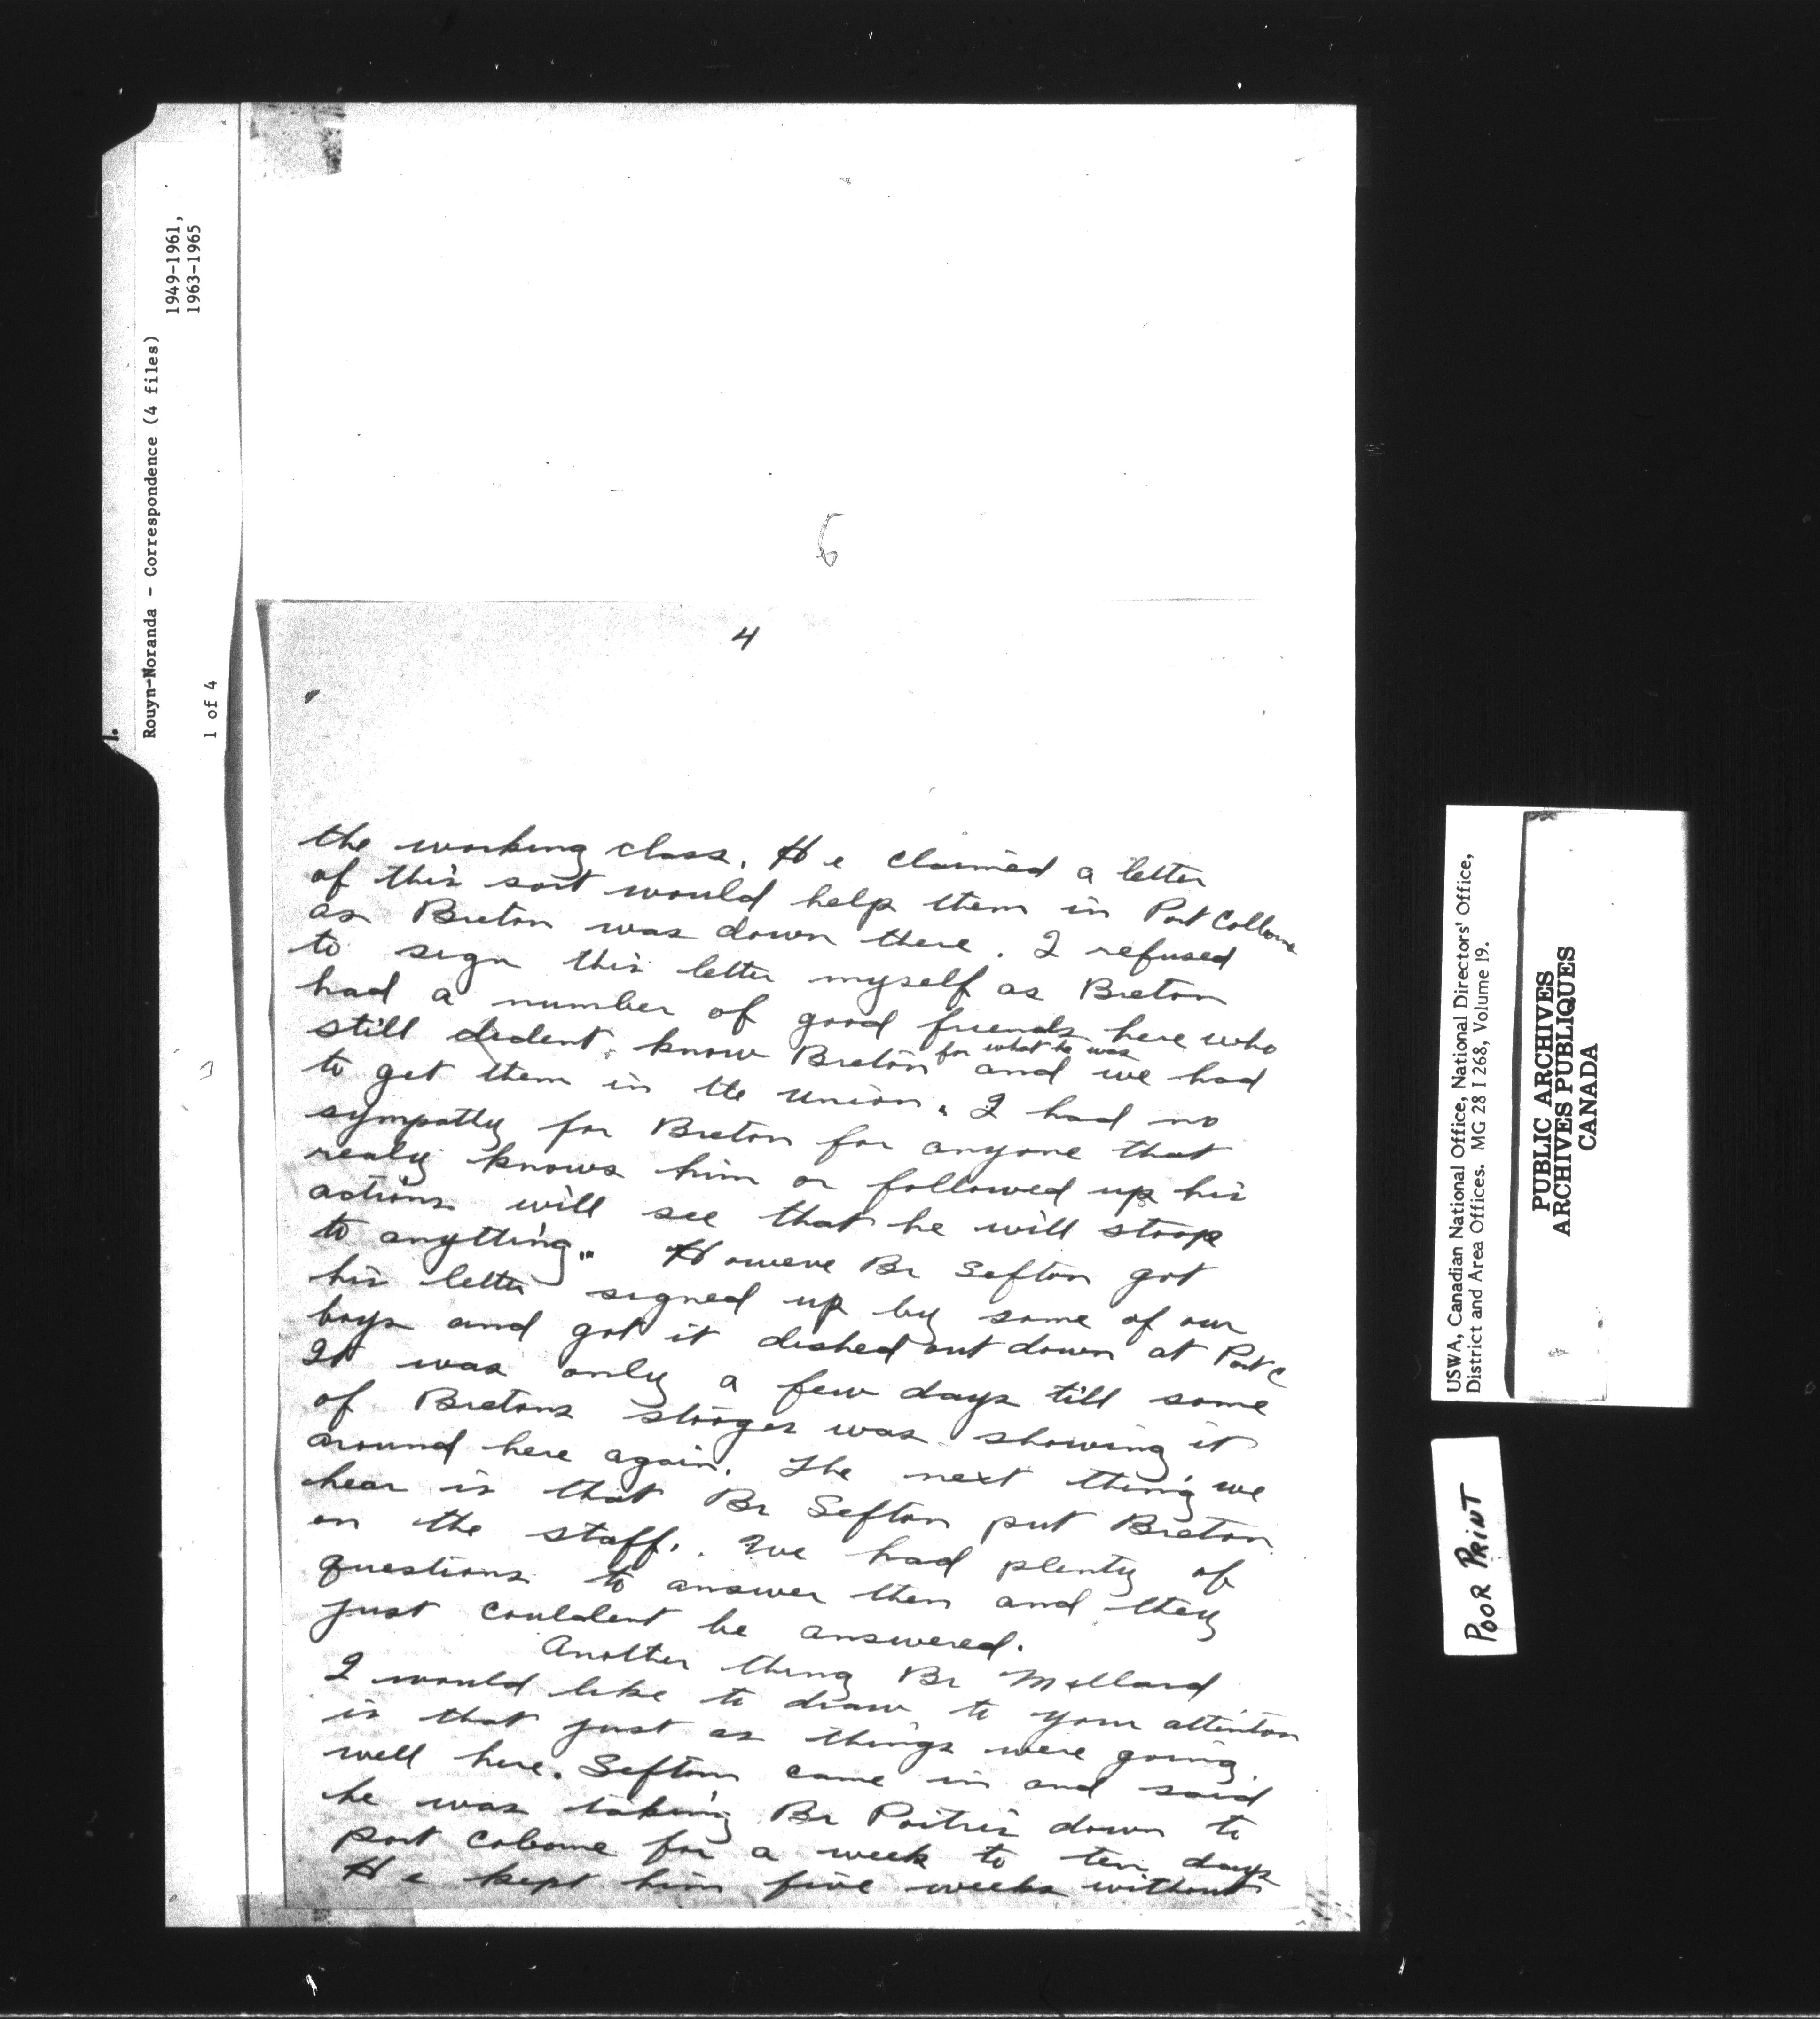 Rouyn-Noranda - Correspondence (4 files)
1949-1961,
1963-1965
1 of 4
1.
6
4
the working class. He claimed a letter
of this sort would help them in Port Colborne
as Breton was down there. I refused
to sign this letter myself as Breton
had a number of good friends here who
still dident know Breton for what he was and we had
to get them in the union. I had no
sympathy for Breton for anyone that
realy knows him or followed up his
actions will see that he will stoop
to anything." Howeve Br Sefton got
his letter signed up by some of our
boys and got it dished out down at Port C
It was only a few days till some
of Bretons stooges was showing it
around here again. The next thing we
hear is that Br Sefton put Breton
on the staff. We had plenty of
questions to answer then and they
just couldent be answered.
Another thing Br Millard
I would like to draw to your attention
is that just as things were going
well here. Sefton came in and said
he was taking Br Poitris down to
port colborne for a week to ten days
He kept him five weeks without
USWA, Canadian National Office, National Directors' Office,
District and Area Offices. MG 28 I 268, Volume 19.
PUBLIC ARCHIVES
ARCHIVES PUBLIQUES
CANADA
POOR PRINT